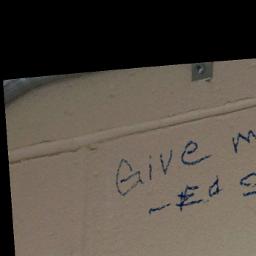 Give m
-Ed S